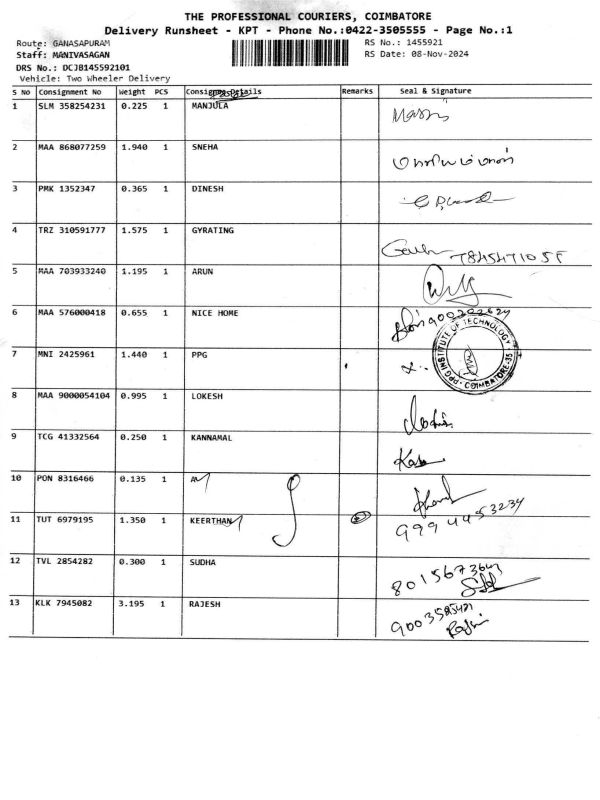 THE PROFESSIONAL COURIERS, COIMBATORE
Delivery Runsheet - KPT - Phone No.:0422-3505555 - Page No.:1
Route: GANASAPURAM RS No.: 1455921
Staff: MANIVASAGAN RS Date: 08-Nov-2024
DRS No.: DCJB145592101
Vehicle: Two Wheeler Delivery
S No Consignment No Weight PCS Consignee Details Remarks Seal & Signature
1 SLM 358254231 0.225 1 MANJULA
2 MAA 868077259 1.940 1 SNEHA
3 PMK 1352347 0.365 1 DINESH
4 TRZ 310591777 1.575 1 GYRATING
5 MAA 703933240 1.195 1 ARUN
6 MAA 576000418 0.655 1 NICE HOME
7 MNI 2425961 1.440 1 PPG
PPG INSTITUTE OF TECHNOLOGY COIMBATORE-35
8 MAA 9000054104 0.995 1 LOKESH
9 TCG 41332564 0.250 1 KANNAMAL
10 PON 8316466 0.135 1
11 TUT 6979195 1.350 1 KEERTHAN 9994453234
12 TVL 2854282 0.300 1 SUDHA
13 KLK 7945082 3.195 1 RAJESH